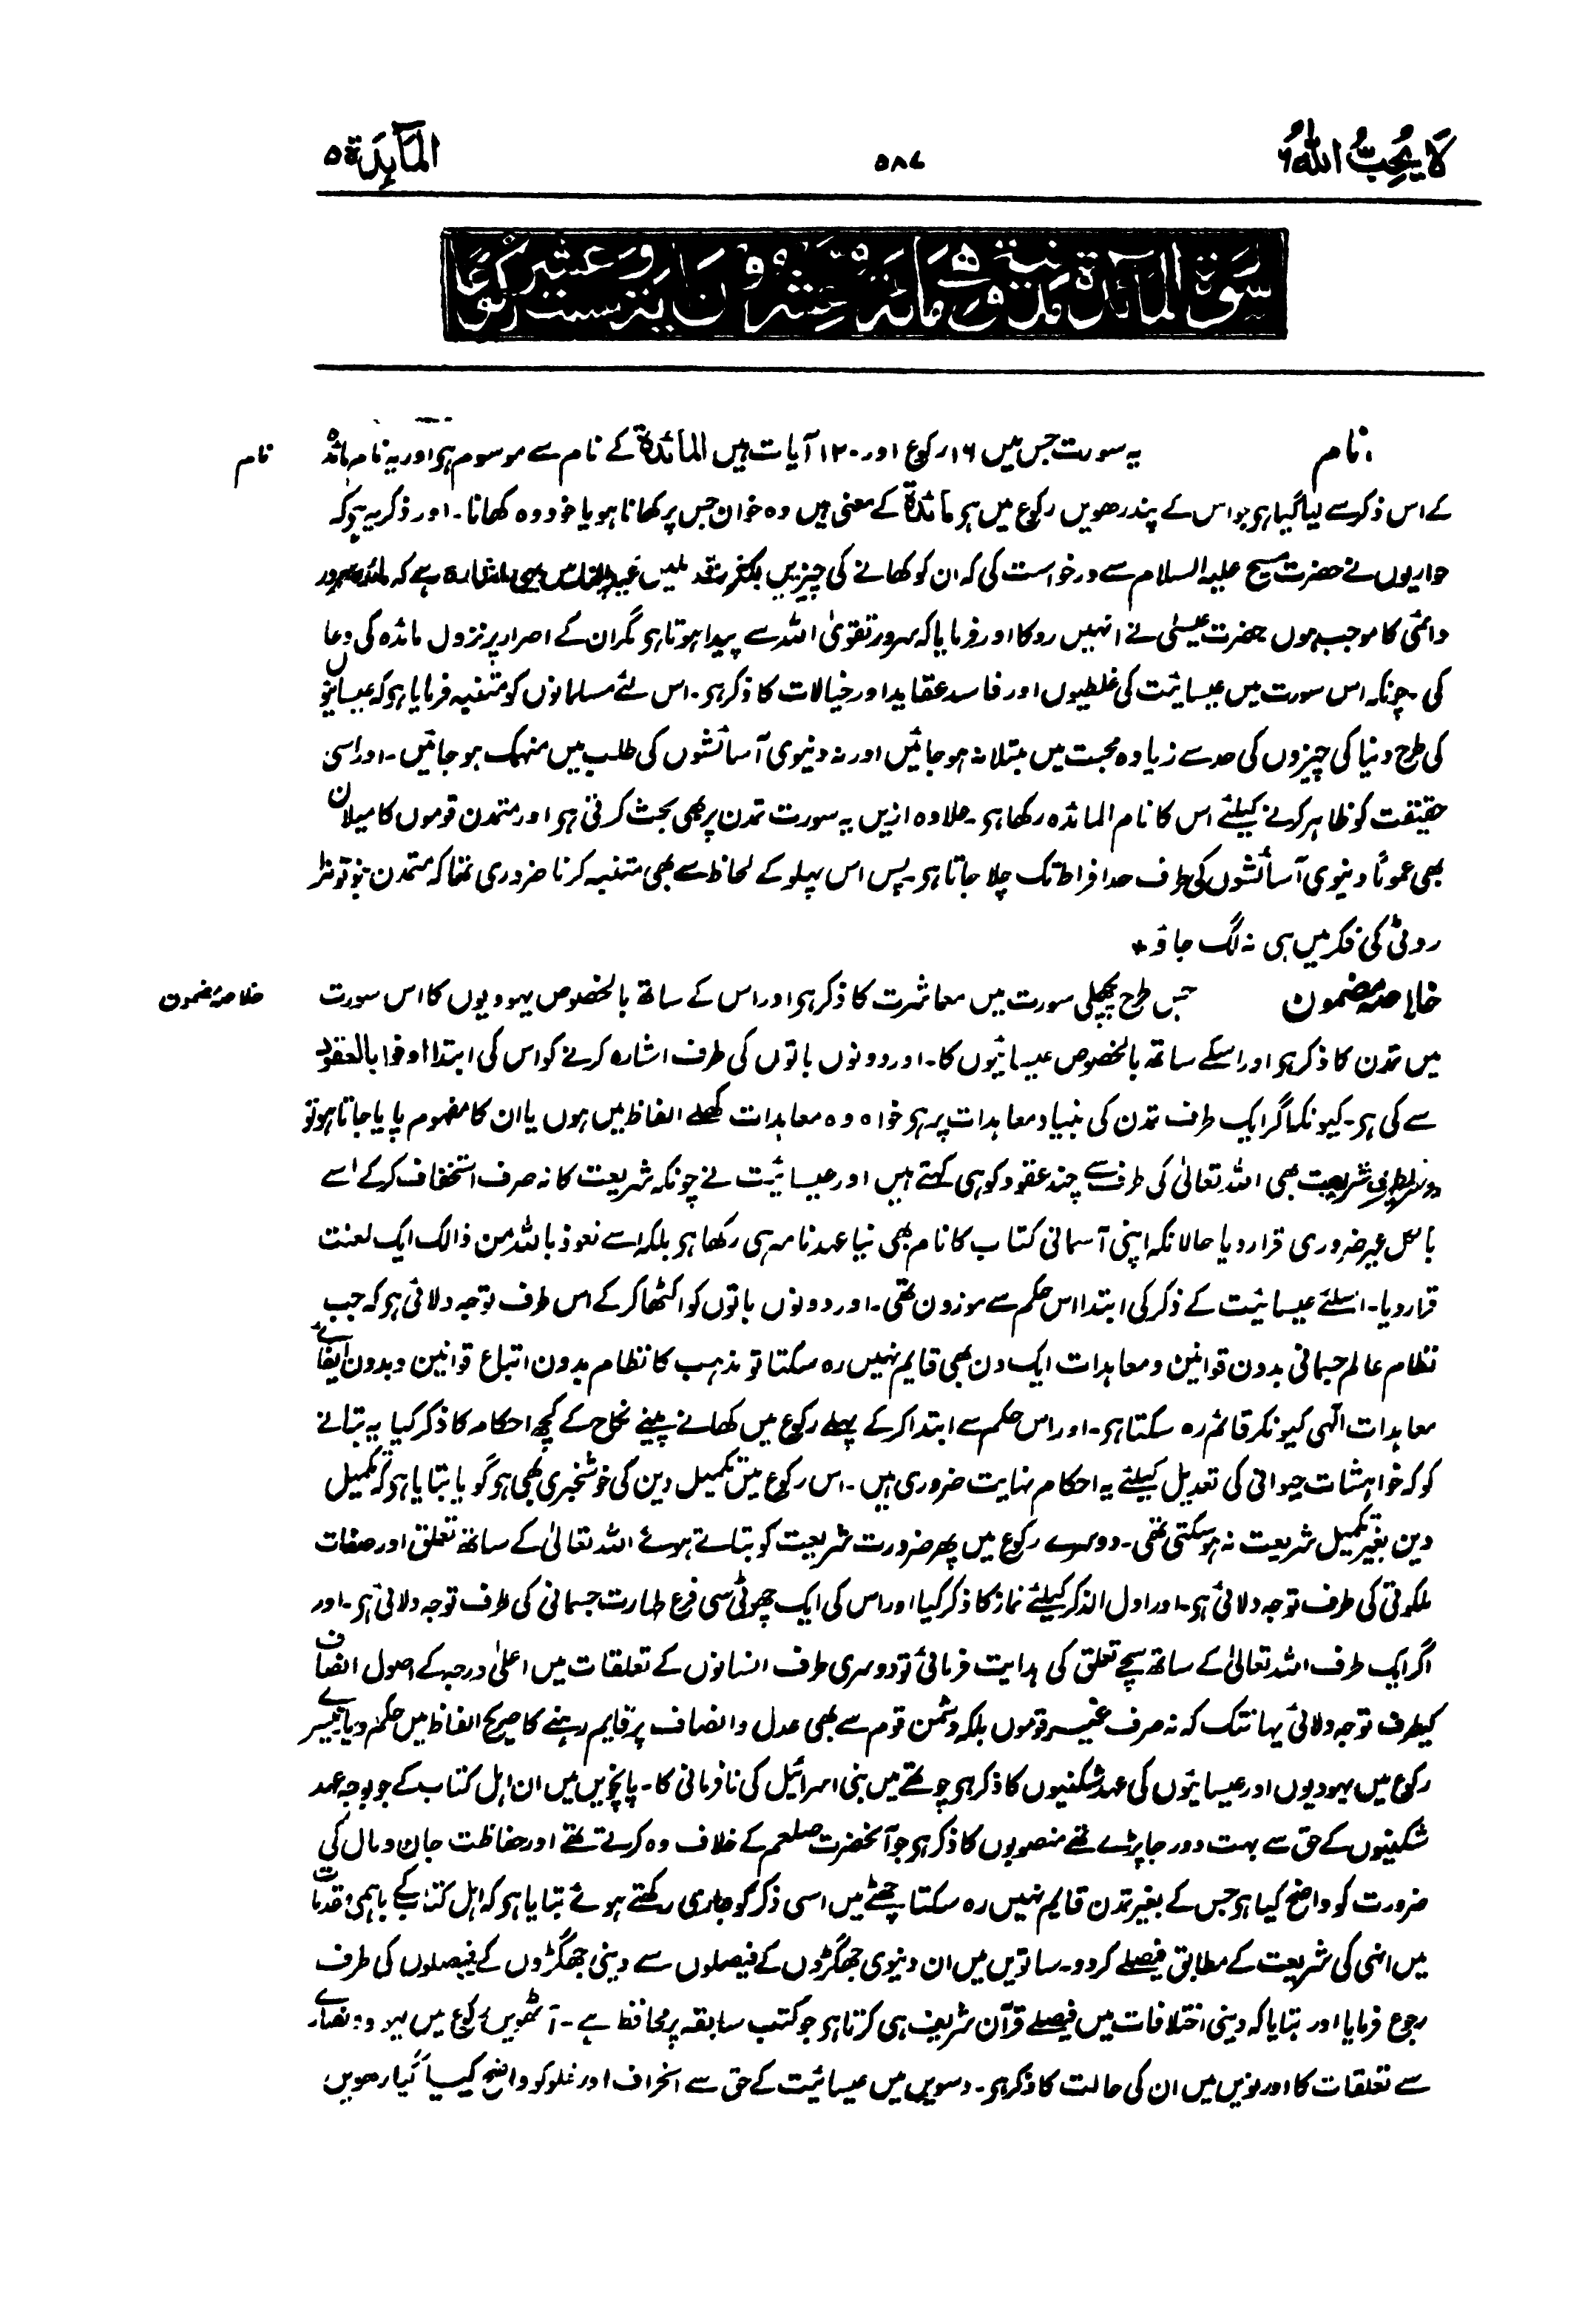 لَا يُحِبُّ اللّٰهُ ٦
٥٨٧
المَآىِٕدَة ٥
سورة المائدة مدنية وهى مائة وعشرون اية وست عشر ركوعا
نام
یہ سورت جس میں ۱۶ رکوع اور ۱۲۰ آیات ہیں المائدۃ کے نام سے موسوم ہو اور یہ نام مائدہ
نام
کے اس ذکر سے لیا گیا ہو جو اس کے پندرھویں رکوع میں ہو مائدۃ کے معنی ہیں وہ خوان جس پر کھانا ہو یا خود وہ کھانا۔ اور ذکر یہ ہو کہ
حواریوں نے حضرت مسیح علیہ السلام سے درخواست کی کہ ان کو کھانے کی چیزیں بکثرت ملیں
دائمی کا موجب ہوں حضرت عیسیٰ نے انہیں روکا اور فرمایا کہ سرور تقویٰ اللہ سے پیدا ہوتا ہو مگر ان کے اصرار پر نزول مائدہ کی دعا
کی۔ چونکہ اس سورت میں عیسائیت کی غلطیوں اور فاسد عقاید اور خیالات کا ذکر ہو۔ اس لئے مسلمانوں کو متنبہ فرمایا ہو کہ عیسائیوں
کی طرح دنیا کی چیزوں کی حد سے زیادہ محبت میں مبتلا نہ ہو جائیں اور نہ دنیوی آسائشوں کی طلب میں منہمک ہو جائیں۔ اور اسی
حقیقت کو ظاہر کرنے کیلئے اس کا نام المائدہ رکھا ہو۔ علاوہ ازیں یہ سورت تمدن پر بھی بحث کرتی ہو اور متمدن قوموں کا میلان
بھی عموماً دنیوی آسائشوں کی طرف حد افراط تک چلا جاتا ہو۔ پس اس پہلو کے لحاظ سے بھی متنبہ کرنا ضروری تھا کہ متمدن بنو تو نرا
روٹی کی فکر میں ہی نہ لگ جاؤ ٭
خلاصہ مضمون
جس طرح پچھلی سورت میں معاشرت کا ذکر ہو اور اس کے ساتھ بالخصوص یہودیوں کا اس سورت
خلاصۂ مضمون
میں تمدن کا ذکر ہو اور اسکے ساتھ بالخصوص عیسائیوں کا۔ اور دونوں باتوں کی طرف اشارہ کرنے کو اس کی ابتدا اوفوا بالعقود
سے کی ہو۔ کیونکہ اگر ایک طرف تمدن کی بنیاد معاہدات پر ہو خواہ وہ معاہدات کھلے الفاظ میں ہوں یا ان کا مفہوم پایا جاتا ہو تو
دوسری طرف شریعت بھی اللہ تعالیٰ کی طرف سے چند عقود کو ہی کہتے ہیں اور عیسائیت نے چونکہ شریعت کا نہ صرف استخفاف کر کے اسے
بالکل غیر ضروری قرار دیا حالانکہ اپنی آسمانی کتاب کا نام بھی نیا عہد نامہ ہی رکھا ہو بلکہ اسے نعوذ باللہ من ذالک ایک لعنت
قرار دیا۔ اسلئے عیسائیت کے ذکر کی ابتدا اس حکم سے موزون تھی۔ اور دونوں باتوں کو اکٹھا کر کے اس طرف توجہ دلائی ہو کہ جب
نظام عالم جسمانی بدون قوانین و معاہدات ایک دن بھی قایم نہیں رہ سکتا تو مذہب کا نظام بدون اتباع قوانین و بدون ایفائے
معاہدات الٰہی کیونکر قائم رہ سکتا ہو۔ اور اس حکم سے ابتدا کر کے پہلے رکوع میں کھانے پینے نکاح کے کچھ احکام کا ذکر کیا یہ بتانے
کو کہ خواہشات حیوانی کی تعدیل کیلئے یہ احکام نہایت ضروری ہیں۔ اس رکوع میں تکمیل دین کی خوشخبری بھی ہو گویا بتایا ہو کہ تکمیل
دین بغیر تکمیل شریعت نہ ہو سکتی تھی۔ دوسرے رکوع میں پھر ضرورت شریعت کو بتاتے ہوئے اللہ تعالیٰ کے ساتھ تعلق اور صفات
ملکوتی کی طرف توجہ دلائی ہو۔ اور اول الذکر کیلئے نماز کا ذکر کیا اور اس کی ایک چھوٹی سی فرع طہارت جسمانی کی طرف توجہ دلائی ہو۔ اور
اگر ایک طرف اللہ تعالیٰ کے ساتھ سچے تعلق کی ہدایت فرمائی تو دوسری طرف انسانوں کے تعلقات میں اعلیٰ درجہ کے اصول انصاف
کیطرف توجہ دلائی یہانتک کہ نہ صرف غیر قوموں بلکہ دشمن قوم سے بھی عدل و انصاف پر قایم رہنے کا صریح الفاظ میں حکم دیا تیسرے
رکوع میں یہودیوں اور عیسائیوں کی عہد شکنیوں کا ذکر ہو چوتھے میں بنی اسرائیل کی نافرمانی کا۔ پانچویں میں ان اہل کتاب کے جو بوجہ عہد
شکنیوں کے حق سے بہت دور جا پڑے تھے منصوبوں کا ذکر ہو جو آنحضرت صلعم کے خلاف وہ کرتے تھے اور حفاظت جان و مال کی
ضرورت کو واضح کیا ہو جس کے بغیر تمدن قایم نہیں رہ سکتا چھٹے میں اسی ذکر کو جاری رکھتے ہوئے بتایا ہو کہ اہل کتاب کے باہمی مقدمات
میں انہی کی شریعت کے مطابق فیصلے کر دو۔ ساتویں میں ان دنیوی جھگڑوں کے فیصلوں سے دینی جھگڑوں کے فیصلوں کی طرف
رجوع فرمایا اور بتایا کہ دینی اختلافات میں فیصلے قرآن شریف ہی کرتا ہو جو کتب سابقہ پر محافظ ہے۔ آٹھویں رکوع میں یہود و نصاریٰ
سے تعلقات کا اور نویں میں ان کی حالت کا ذکر ہو۔ دسویں میں عیسائیت کے حق سے انحراف اور غلو کو واضح کیا گیارھویں